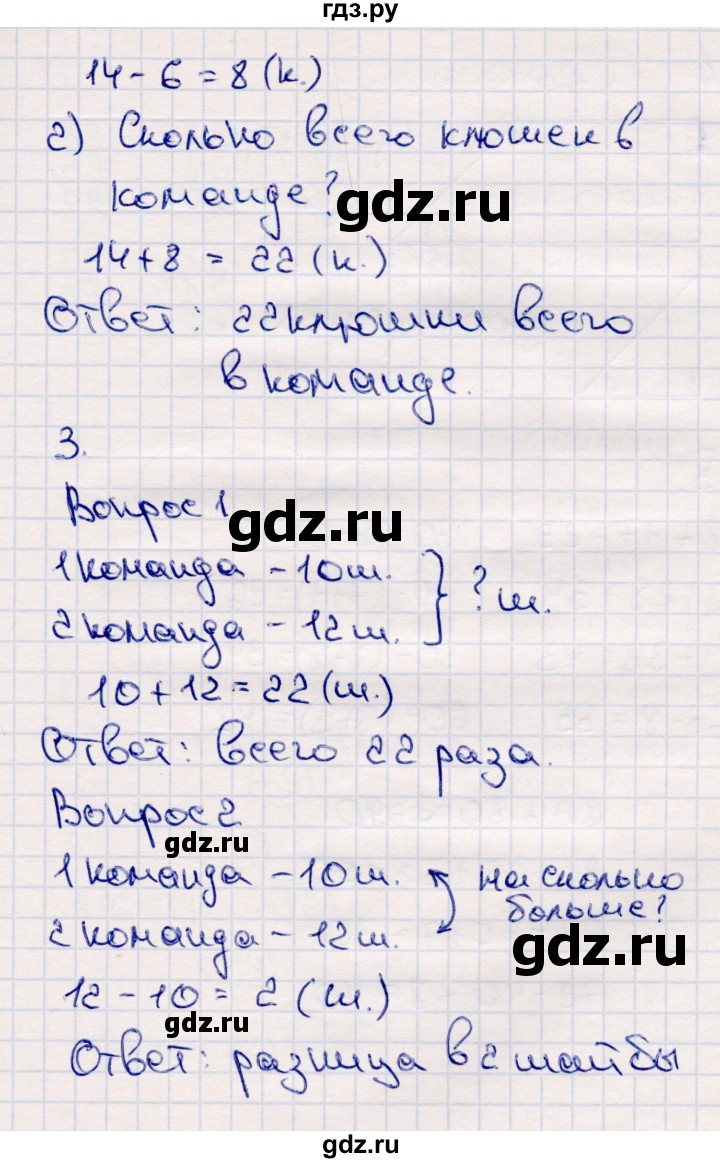 гдз.ру
14 - 6 = 8 (к.)
2) Сколько всего клюшек в
команде?
gdz.ru
14 + 8 = 22 (к.)
Ответ: 22 клюшки всего
в команде.
3.
Вопрос 1
gdz.ru
1 команда - 10 ш.
2 команда - 12 ш.
? ш.
10 + 12 = 22 (ш.)
Ответ: всего 22 раза.
Вопрос 2
gdz.ru
1 команда - 10 ш.
на сколько
больше?
2 команда - 12 ш.
gdz.ru
12 - 10 = 2 (ш.)
gdz.ru
Ответ: разница в 2 шайбы
gdz.ru